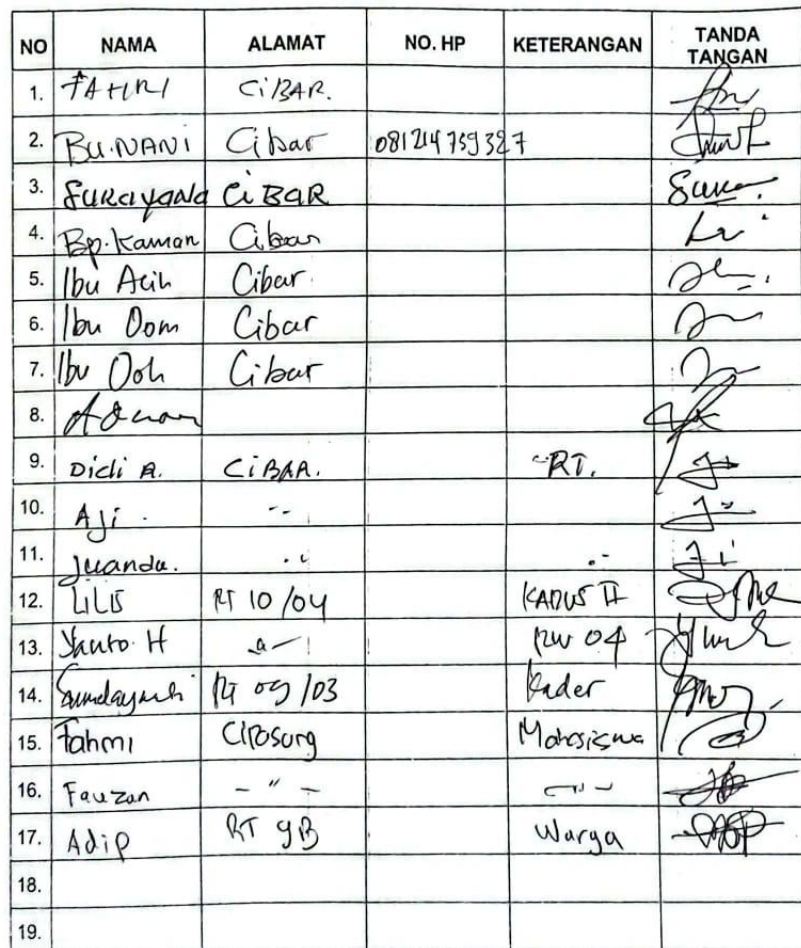 NO NAMA ALAMAT NO. HP KETERANGAN TANDA TANGAN
1. FAHRI CiBAR.
2. BU.NANi Cibar
3. CiBAR
4. Bp.Kaman Cibar
5. Ibu Acih Cibar
6. Ibu Oom Cibar
7. Ibu Ooh Cibar
8.
9. Didi A. CiBAR. RT.
10. Aji. "
11. Juanda. " "
12. LILIS RT 10/04 KADUS II
13. Yanto H RW 04
14. RT 09/03 Kader
15. Fahmi Mahasiswa
16. Fauzan - " - - " -
17. Adip RT 9B Warga
18.
19.